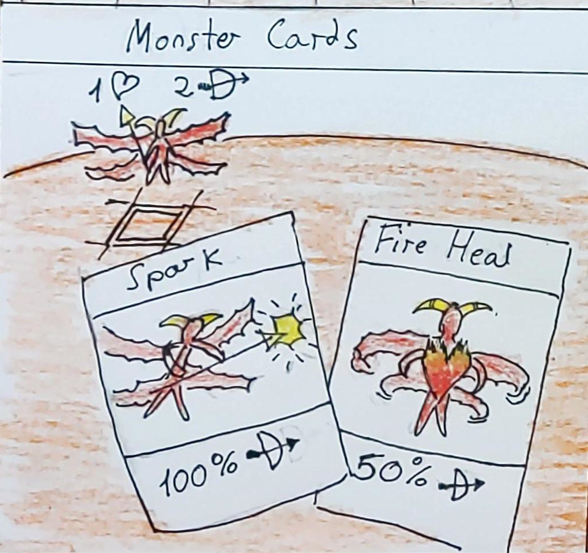 Monster Cards
1 2
Spark
Fire Heal
100%
50%